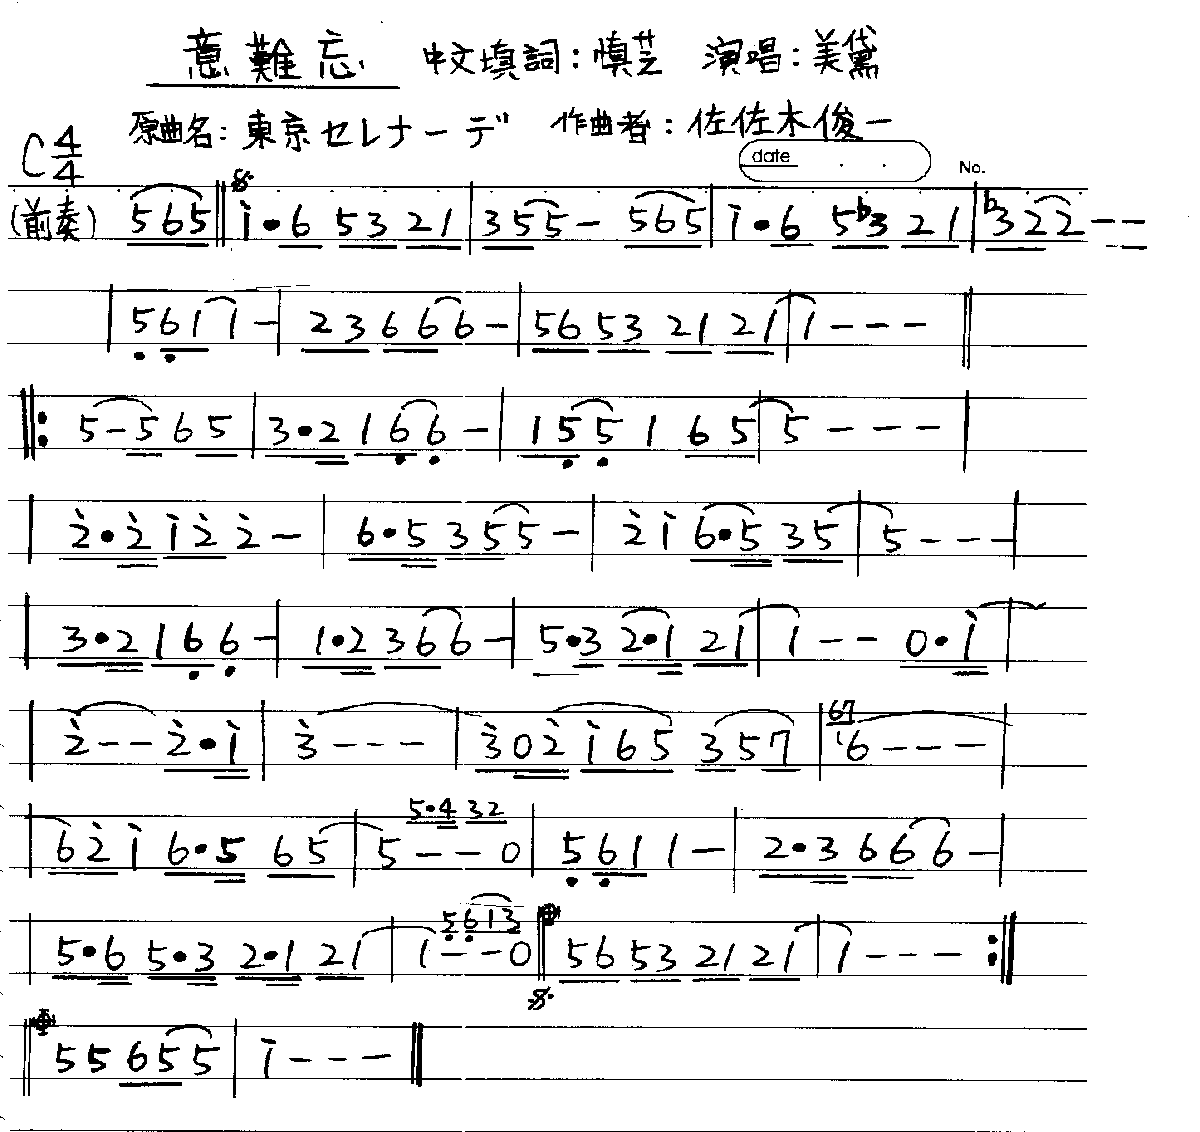 意難忘 中文填詞：慎芝 演唱：美黛
原曲名：東京セレナーデ 作曲者：佐佐木俊一
C 4/4
date . . No.
(前奏) 565 ‖ i•6 53 21 | 355- 565 | i•6 5b3 21 | b322--
| 5611- | 23666- | 56 53 21 21 | 1--- ‖
‖: 5-565 | 3•2166- | 155165 | 5--- |
| 2•2122- | 6•5355- | 2i6•535 | 5--- |
| 3•2166- | 1•2366- | 5•3 2•1 21 | 1--0•i |
| 2--2•i | 3--- | 302i65 357 | 67 6--- |
| 62i6•5 65 | 5--0 5•4 32 | 5611- | 2•3666- |
| 5•6 5•3 2•1 21 | 1--0 5613 ‖ 56 53 21 21 | 1--- :‖
‖ 55655 | i--- ‖